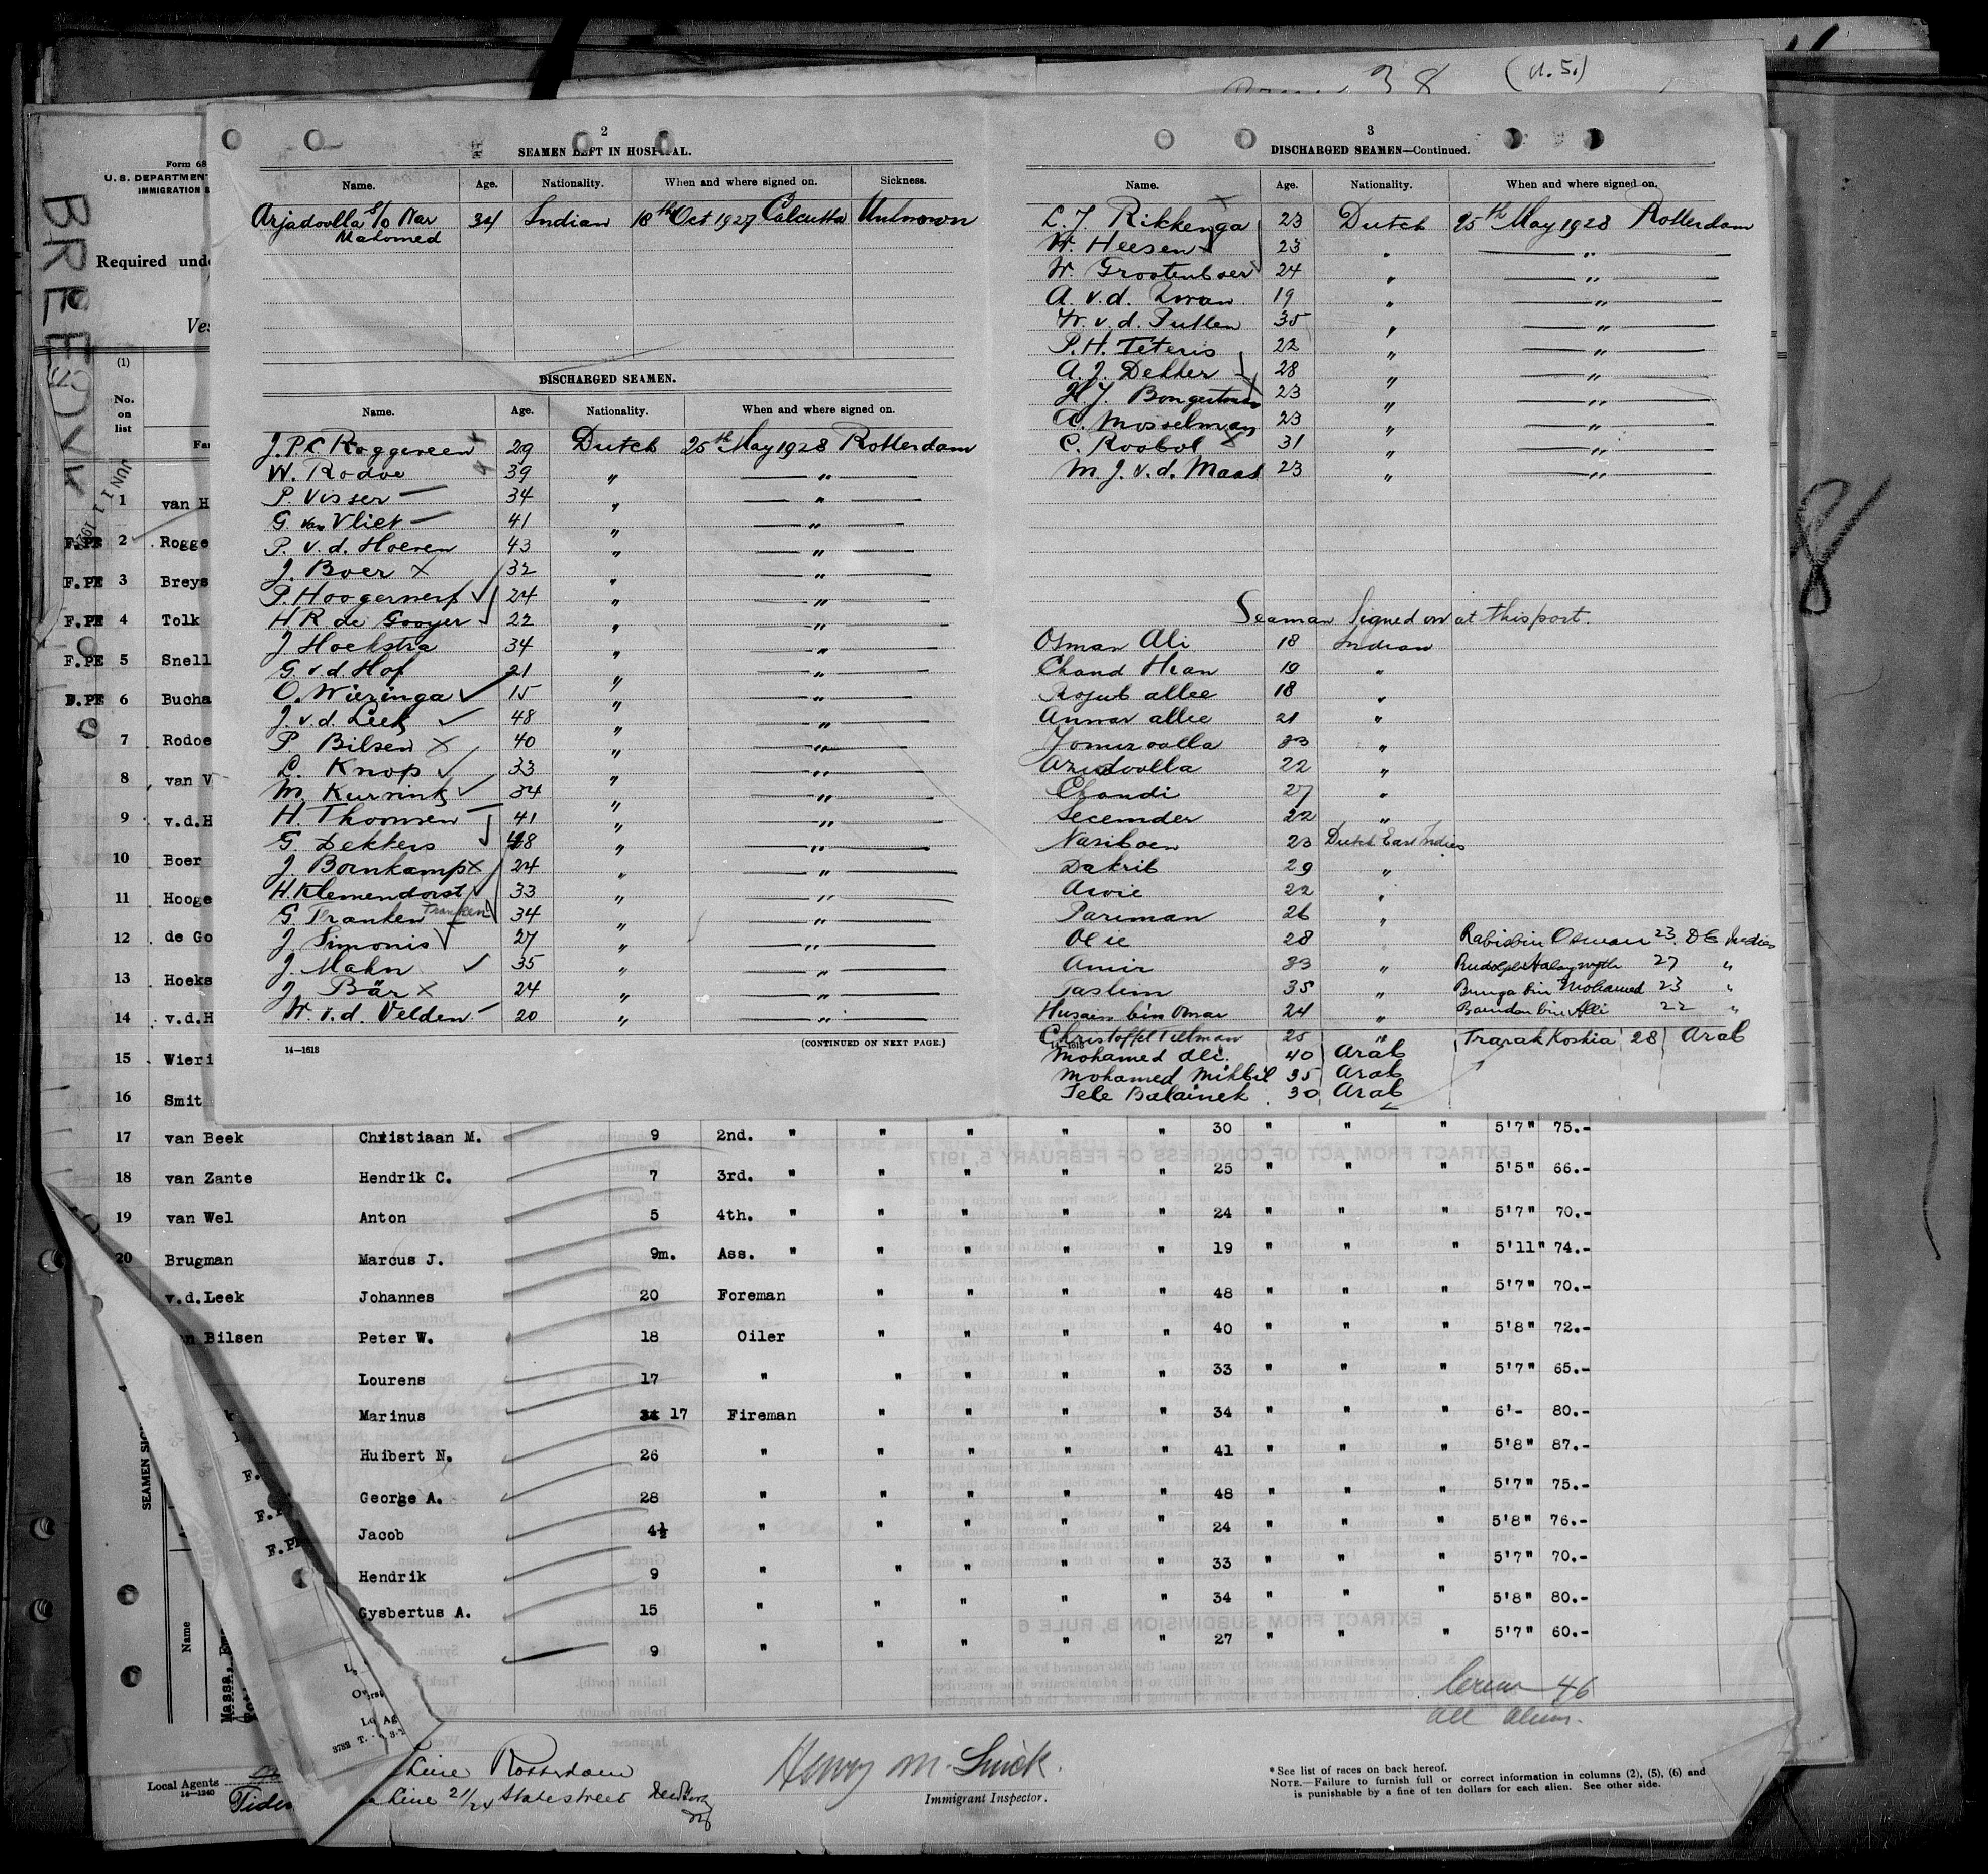 38 (U.S.)
2
SEAMEN LEFT IN HOSPITAL.
Name. Age. Nationality. When and where signed on. Sickness.
Arjadoolla s/o Nar Mahomed 34 Indian 18th Oct 1927 Calcutta Unknown
DISCHARGED SEAMEN.
Name. Age. Nationality. When and where signed on.
J.P.C Roggeveen 29 Dutch 25th May 1928 Rotterdam
W. Rodoe 39 " "
P. Visser 34 " "
G. van Vliet 41 " "
P. v.d. Hoeven 43 " "
J. Boer X 32 " "
P. Hoogerwerf 24 " "
H R de Gooyer 22 " "
J Hoekstra 34 " "
G. v.d Hof 21 " "
O. Wieringa 15 " "
J. v.d. Leek 48 " "
P. Bilsen X 40 " "
L. Knop 33 " "
M. Kurvink 34 " "
H. Thoomsen 41 " "
G. Dekkers 48 " "
J. Boenkamp X 24 " "
H. Klemendorst 33 " "
G. Franken Franken 34 " "
J. Simonis 27 " "
J. Mahn 35 " "
J. Bär X 24 " "
W. v.d. Velden 20 " "
14—1613 (CONTINUED ON NEXT PAGE.)
3
DISCHARGED SEAMEN—Continued.
Name. Age. Nationality. When and where signed on.
L. J. Rikkenga 23 Dutch 25th May 1928 Rotterdam
W. Heesen 23 " "
W. Grootenboer 24 " "
A. v.d. Zwan 19 " "
W. v.d. Putten 35 " "
P.H. Teteris 22 " "
A. J. Dekker 28 " "
J. Bongertman 23 " "
A. Mosselman 23 " "
C. Roobol 31 " "
M. J. v.d. Maas 23 " "
Seaman Signed on at this port.
Osman Ali 18 Indian
Chand Mean 19 "
Rojub allee 18 "
Anwar allee 21 "
Yomeroolla 23 "
Azudoolla 22 "
Chandi 27 "
Secemder 22 "
Nasiboen 23 Dutch East Indies
Dakrib 29 "
Awie 22 "
Pariman 26 "
Olie 28 " Rabidbin Osman 23. D E Indies
Amir 23 " 27 "
Taslem 35 " Bunga bin Mohamed 23 "
Husain bin Omar 24 " Bandon bin Alli 22 "
Christoffel Tielman 25 " Trarak Koshia 28 Arab
14—1613
Mohamed Ali. 40 Arab
Mohamed Mikbil 35 Arab
Tele Balainek 30 Arab
BREEDYK
JUN 1 1 1928
Form 68
U. S. DEPARTMENT
IMMIGRATION S
Required unde
Ves
(1)
No. on list
Fa
1 van H
F.PE 2 Rogge
F.PE 3 Breys
F.PE 4 Tolk
F.PE 5 Snell
F.PE 6 Bucha
7 Rodoe
8 van V
9 v.d.H
10 Boer
11 Hooge
12 de Go
13 Hoeks
14 v.d.H
15 Wieri
16 Smit
17 van Beek Christiaan M. 9 2nd. " " " " " 30 " " " 5'7" 75.-
18 van Zante Hendrik C. 7 3rd. " " " " " 25 " " " 5'5" 66.-
19 van Wel Anton 5 4th. " " " " " 24 " " " 5'7" 70.-
20 Brugman Marcus J. 9m. Ass. " " " " " 19 " " " 5'11" 74.-
v.d.Leek Johannes 20 Foreman " " " " 48 " " " 5'7" 70.-
n Bilsen Peter W. 18 Oiler " " " " 40 " " " 5'8" 72.-
Lourens 17 " " " " " 33 " " " 5'7" 65.-
Marinus 17 Fireman " " " " 34 " " " 6'- 80.-
Huibert N. 26 " " " " " 41 " " " 5'8" 87.-
George A. 28 " " " " " 48 " " " 5'7" 75.-
Jacob 4½ " " " " " 24 " " " 5'8" 76.-
Hendrik 9 " " " " " 33 " " " 5'7" 70.-
Gysbertus A. 15 " " " " " 34 " " " 5'8" 80.-
9 " " " " " 27 " " " 5'7" 60.-
SEAMEN SIG
Name
F.PE
3782 T.
Crew 46
all aliens.
Local Agents
14—1240
Line Rotterdam
Line 21/24 State street
Henry M. Smick.
Immigrant Inspector.
* See list of races on back hereof.
NOTE.—Failure to furnish full or correct information in columns (2), (5), (6) and
is punishable by a fine of ten dollars for each alien. See other side.
8